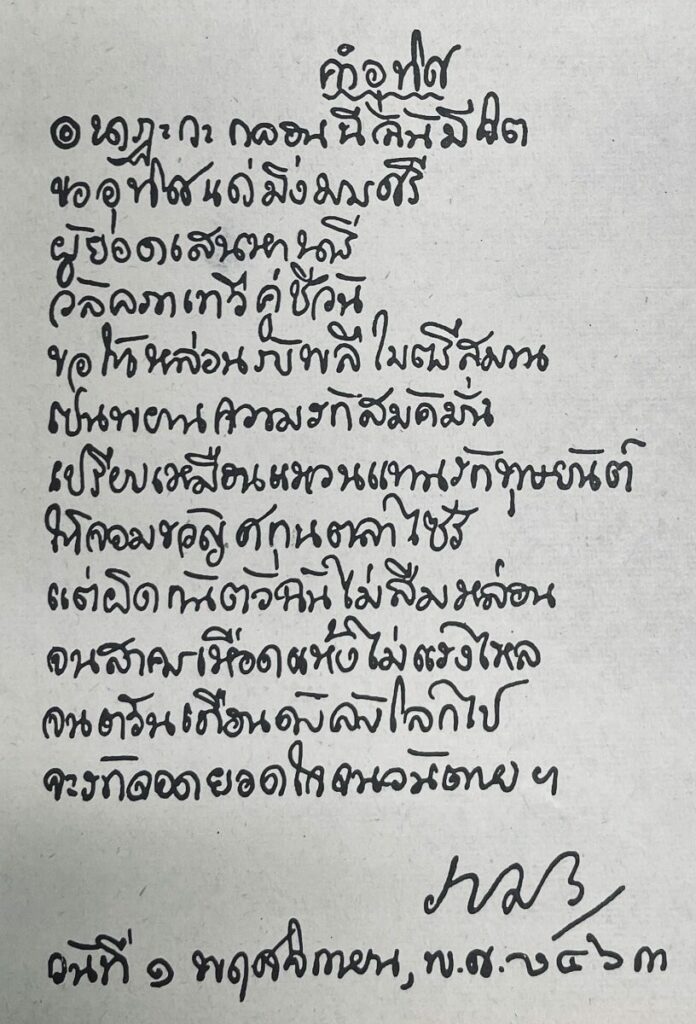 คำอุทิศ
๏ นาฏะกะกลอนนี้ฉันมีจิต
ขออุทิศแด่มิ่งมารศรี
ผู้ยอดเสนหานารี
วัลลภาเทวีคู่ชีวัน
ขอให้หล่อนรับพลีไมตรีสมาน
เป็นพยานความรักสมัคมั่น
เปรียบเหมือนแหวนแทนรักทุษยันต์
ให้จอมขวัญศกุนตลาไซร้
แต่ผิดกันตัวฉันไม่ลืมหล่อน
จนสาครเหือดแห้งไม่แรงไหล
จนตวันเดือนดับลับโลกไป
จะรักจอดยอดใจจนวันตาย ฯ
ราม ร
วันที่ ๑ พฤศจิกายน, พ.ศ. ๒๔๖๓